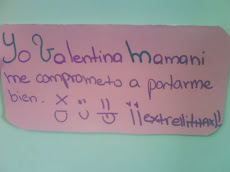 Yo Valentina Mamani
me comprometo a portarme
bien.